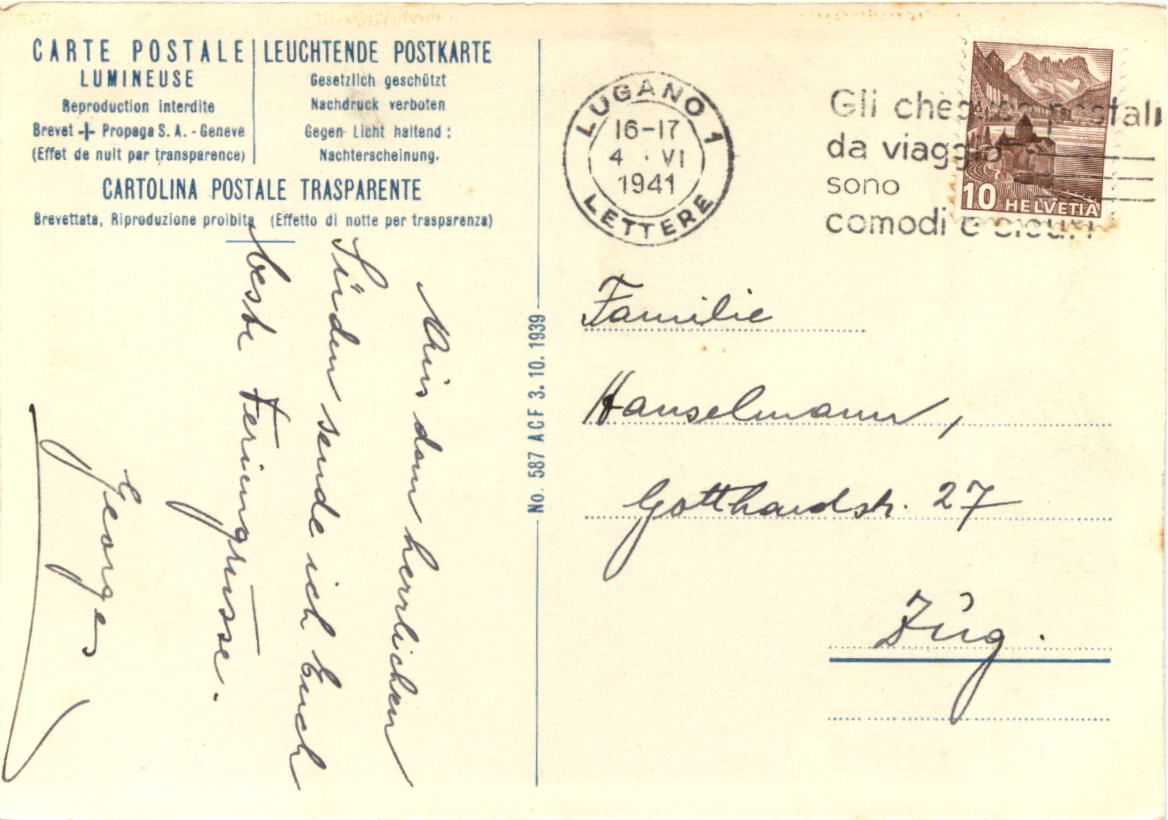 CARTE POSTALE
LUMINEUSE
Reproduction interdite
Brevet + Propaga S.A. - Geneve
(Effet de nuit par transparence)
LEUCHTENDE POSTKARTE
Gesetzlich geschützt
Nachdruck verboten
Gegen Licht haltend :
Nachterscheinung.
CARTOLINA POSTALE TRASPARENTE
Brevettata, Riproduzione proibita (Effetto di notte per trasparenza)
Aus dem herrlichen
Süden sende ich Euch
beste Feriengrüsse.
Georges
No. 587 ACF 3. 10. 1939
LUGANO 1
16-17
4 · VI
1941
LETTERE
Gli chèques postali
da viaggio
sono
comodi e sicuri
10 HELVETIA
Familie
Hanselmann,
Gotthardstr. 27
Zug.